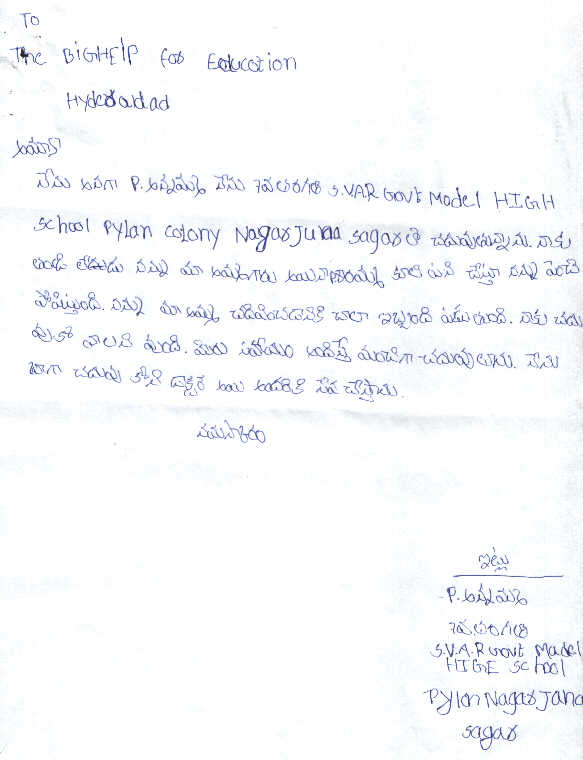 To
The BIGHElP for Education
Hyderabad
అయ్యా
నేను అనగా P. అన్నమ్మ నేను 7వ తరగతి S.VAR Govt Model HIGH
school Pylan colony Nagar Juna sagar లో చదువుతున్నాను. నాకు
తండ్రి లేడు నన్ను మా అమ్మగారు కూలి పని చేస్తూ నన్ను పెంచి
పోషిస్తుంది. నన్ను మా అమ్మ చదివించడానికి చాలా ఇబ్బంది పడుతుంది. నాకు చదు
వుకో వాలని వుంది. మీరు సహాయం అందిస్తే మంచిగా చదువుతాను. నేను
బాగా చదువు కొని డాక్టర్ అయి అందరికి సేవ చేస్తాను.
నమస్కారం
ఇట్లు
P. అన్నమ్మ
7వ తరగతి
S.V.A.R Govt Madel
HIGE School
Pylon Nagar Jana
sagar